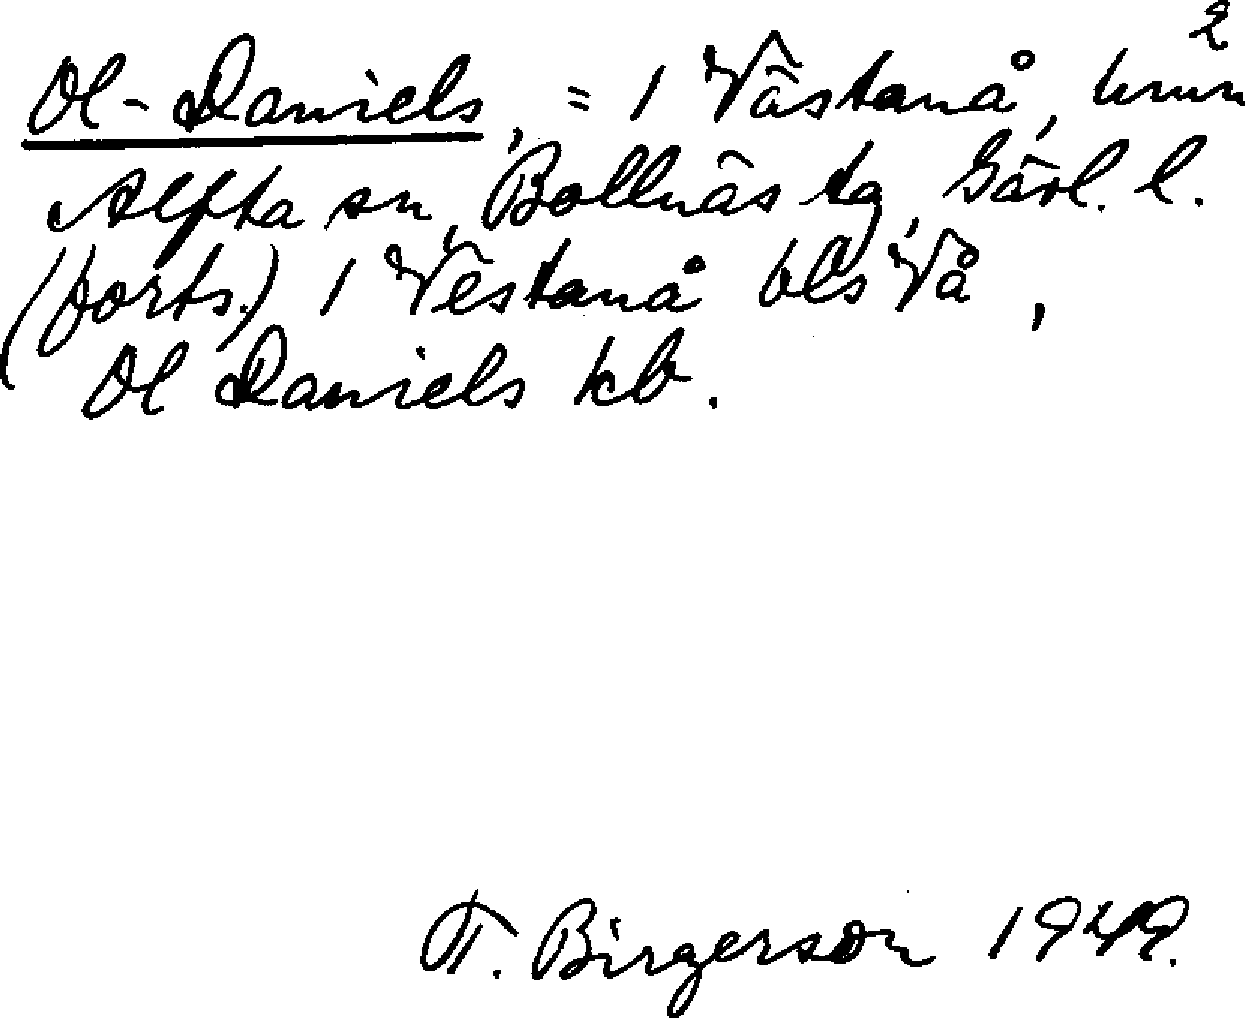 2
Ol-Daniels, = 1 Västanå, hmn
Alfta sn, Bollnäs tg, Gävl. l.
(forts.) 1 Vestanå bls Vå,
Ol Daniels kb.
F. Birgerson 1949.